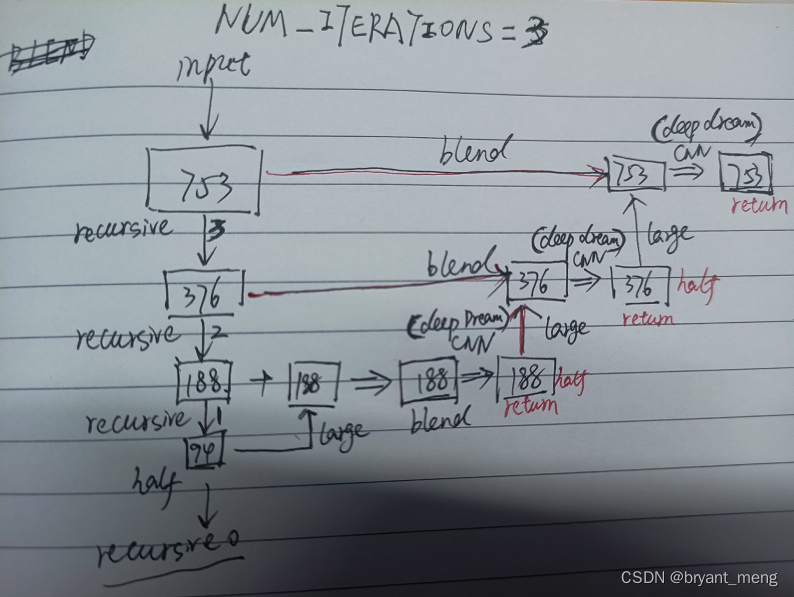 NUM_ITERATIONS = 3
BLEND
input
(deep dream)
CNN
blend
753
753
753
return
recursive 3
large
(deep dream)
CNN
blend
376
376
376
half
return
recursive 2
(deep Dream)
CNN
large
188
+
188
188
188
half
return
blend
recursive 1
large
94
half
recursive 0
CSDN @bryant_meng